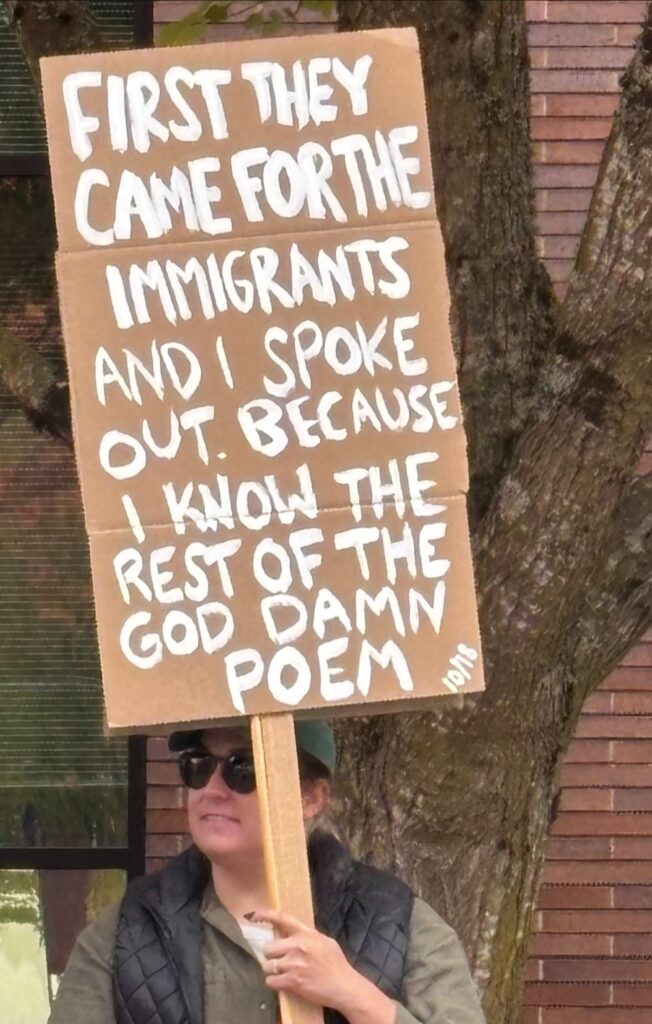 FIRST THEY
CAME FOR THE
IMMIGRANTS
AND I SPOKE
OUT. BECAUSE
I KNOW THE
REST OF THE
GOD DAMN
POEM
10/18